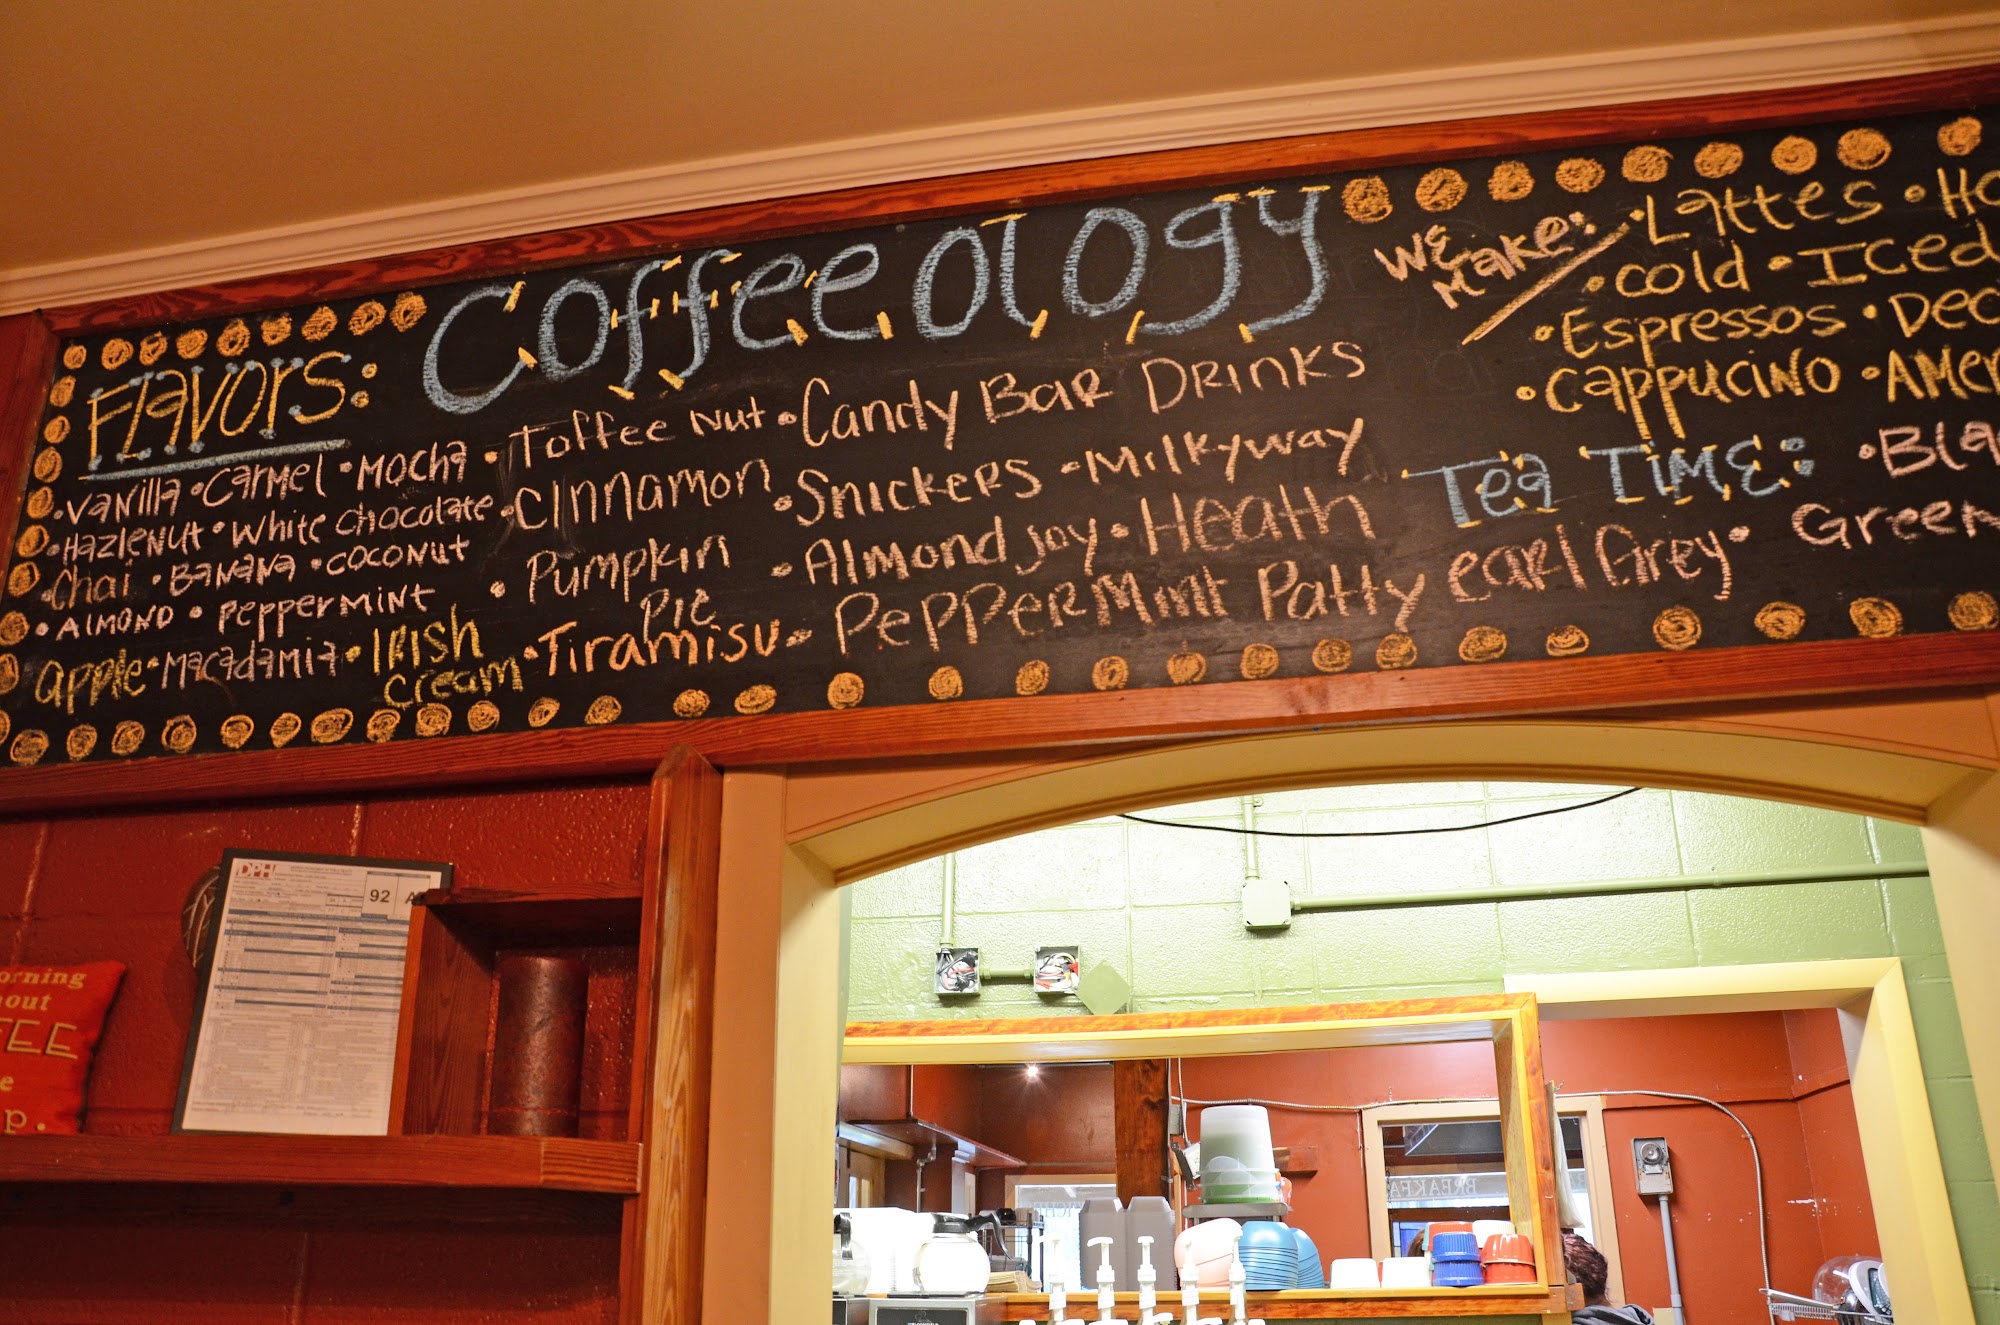 Coffeeology
FLavors:
• Vanilla • Carmel • Mocha • Toffee Nut
• Hazlenut • White Chocolate • Cinnamon
• Chai • Banana • Coconut • Pumpkin Pie
• Almond • Peppermint
Apple • Macadamia • Irish Cream • Tiramisu
• Candy Bar Drinks
• Snickers • Milkyway
• Almond Joy • Heath
• Peppermint Patty
We Make:
• Lattes • Ho
• Cold • Iced
• Espressos • Dec
• Cappucino • Amer
Tea Time: • Bla
Earl Grey • Green
DPH
92 A
orning
hout
FEE
e
p.
BREAKFA